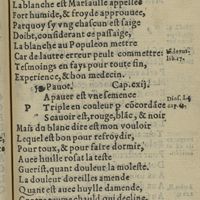 La blanche est Mariaulle appellee
Fort humide, & froyde approuuee,
Parquoy sy vng chascun est saige
Doibt, considerant ce passaige,
La blanche au Populeon mettre
Car de lautre erreur peult commettre:
Tesmoings en fays pour toute fin,
Experience, & bon medecin.
Pauot. Cap.cxij.
A pauer est vne semence
P Triple en couleur p cōcordāce
Scauoir est, rouge, blāc, & noir
Mais du blanc dire est mon vouloir
Lequel est bon pour refroydir,
Pour toux, & pour faire dormir,
Auec huille rosat la teste
Guerist, quant douleur la moleste.
La douleur doreilles amende
Quant est auec huylle damende,